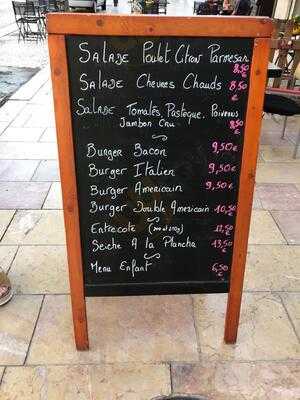 Salade Poulet Citron Parmesan
8,50 €
Salade Chevres Chauds 8,50
€
Salade Tomates, Pasteque, Poivrons
Jambon Cru 8,50
€
Burger Bacon 9,50€
Burger Italien 9,50€
Burger Americain 9,50€
Burger Double Americain 10,50
€
Entrecote
€
Seiche A la Plancha 13,50
€
Menu Enfant 6,50
€